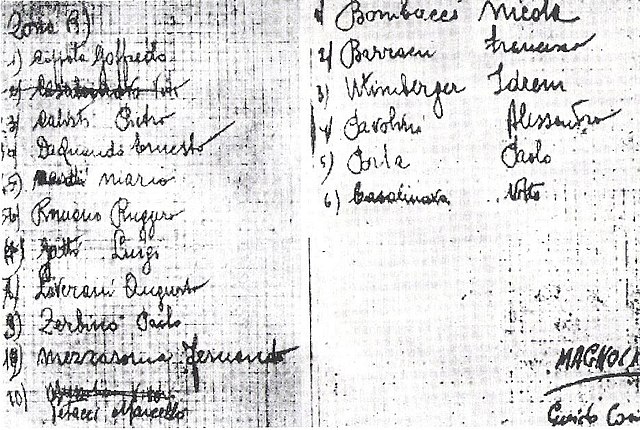 Zona B)
1) Coppola Goffredo
2) Casalinuovo Vito
3) Calisti Pietro
4) Daquanno Ernesto
5) Nudi Mario
6) Romano Ruggero
7) Gatti Luigi
8) Liverani Augusto
9) Zerbino Paolo
10) Mezzasoma Fernando
10)
Petacci Marcello
1) Bombacci Nicola
2) Barracu Francesco
3) Utimberger Idreno
4) Pavolini Alessandro
5) Porta Paolo
6) Casalinovo Vito
MAGNOLI
Guido